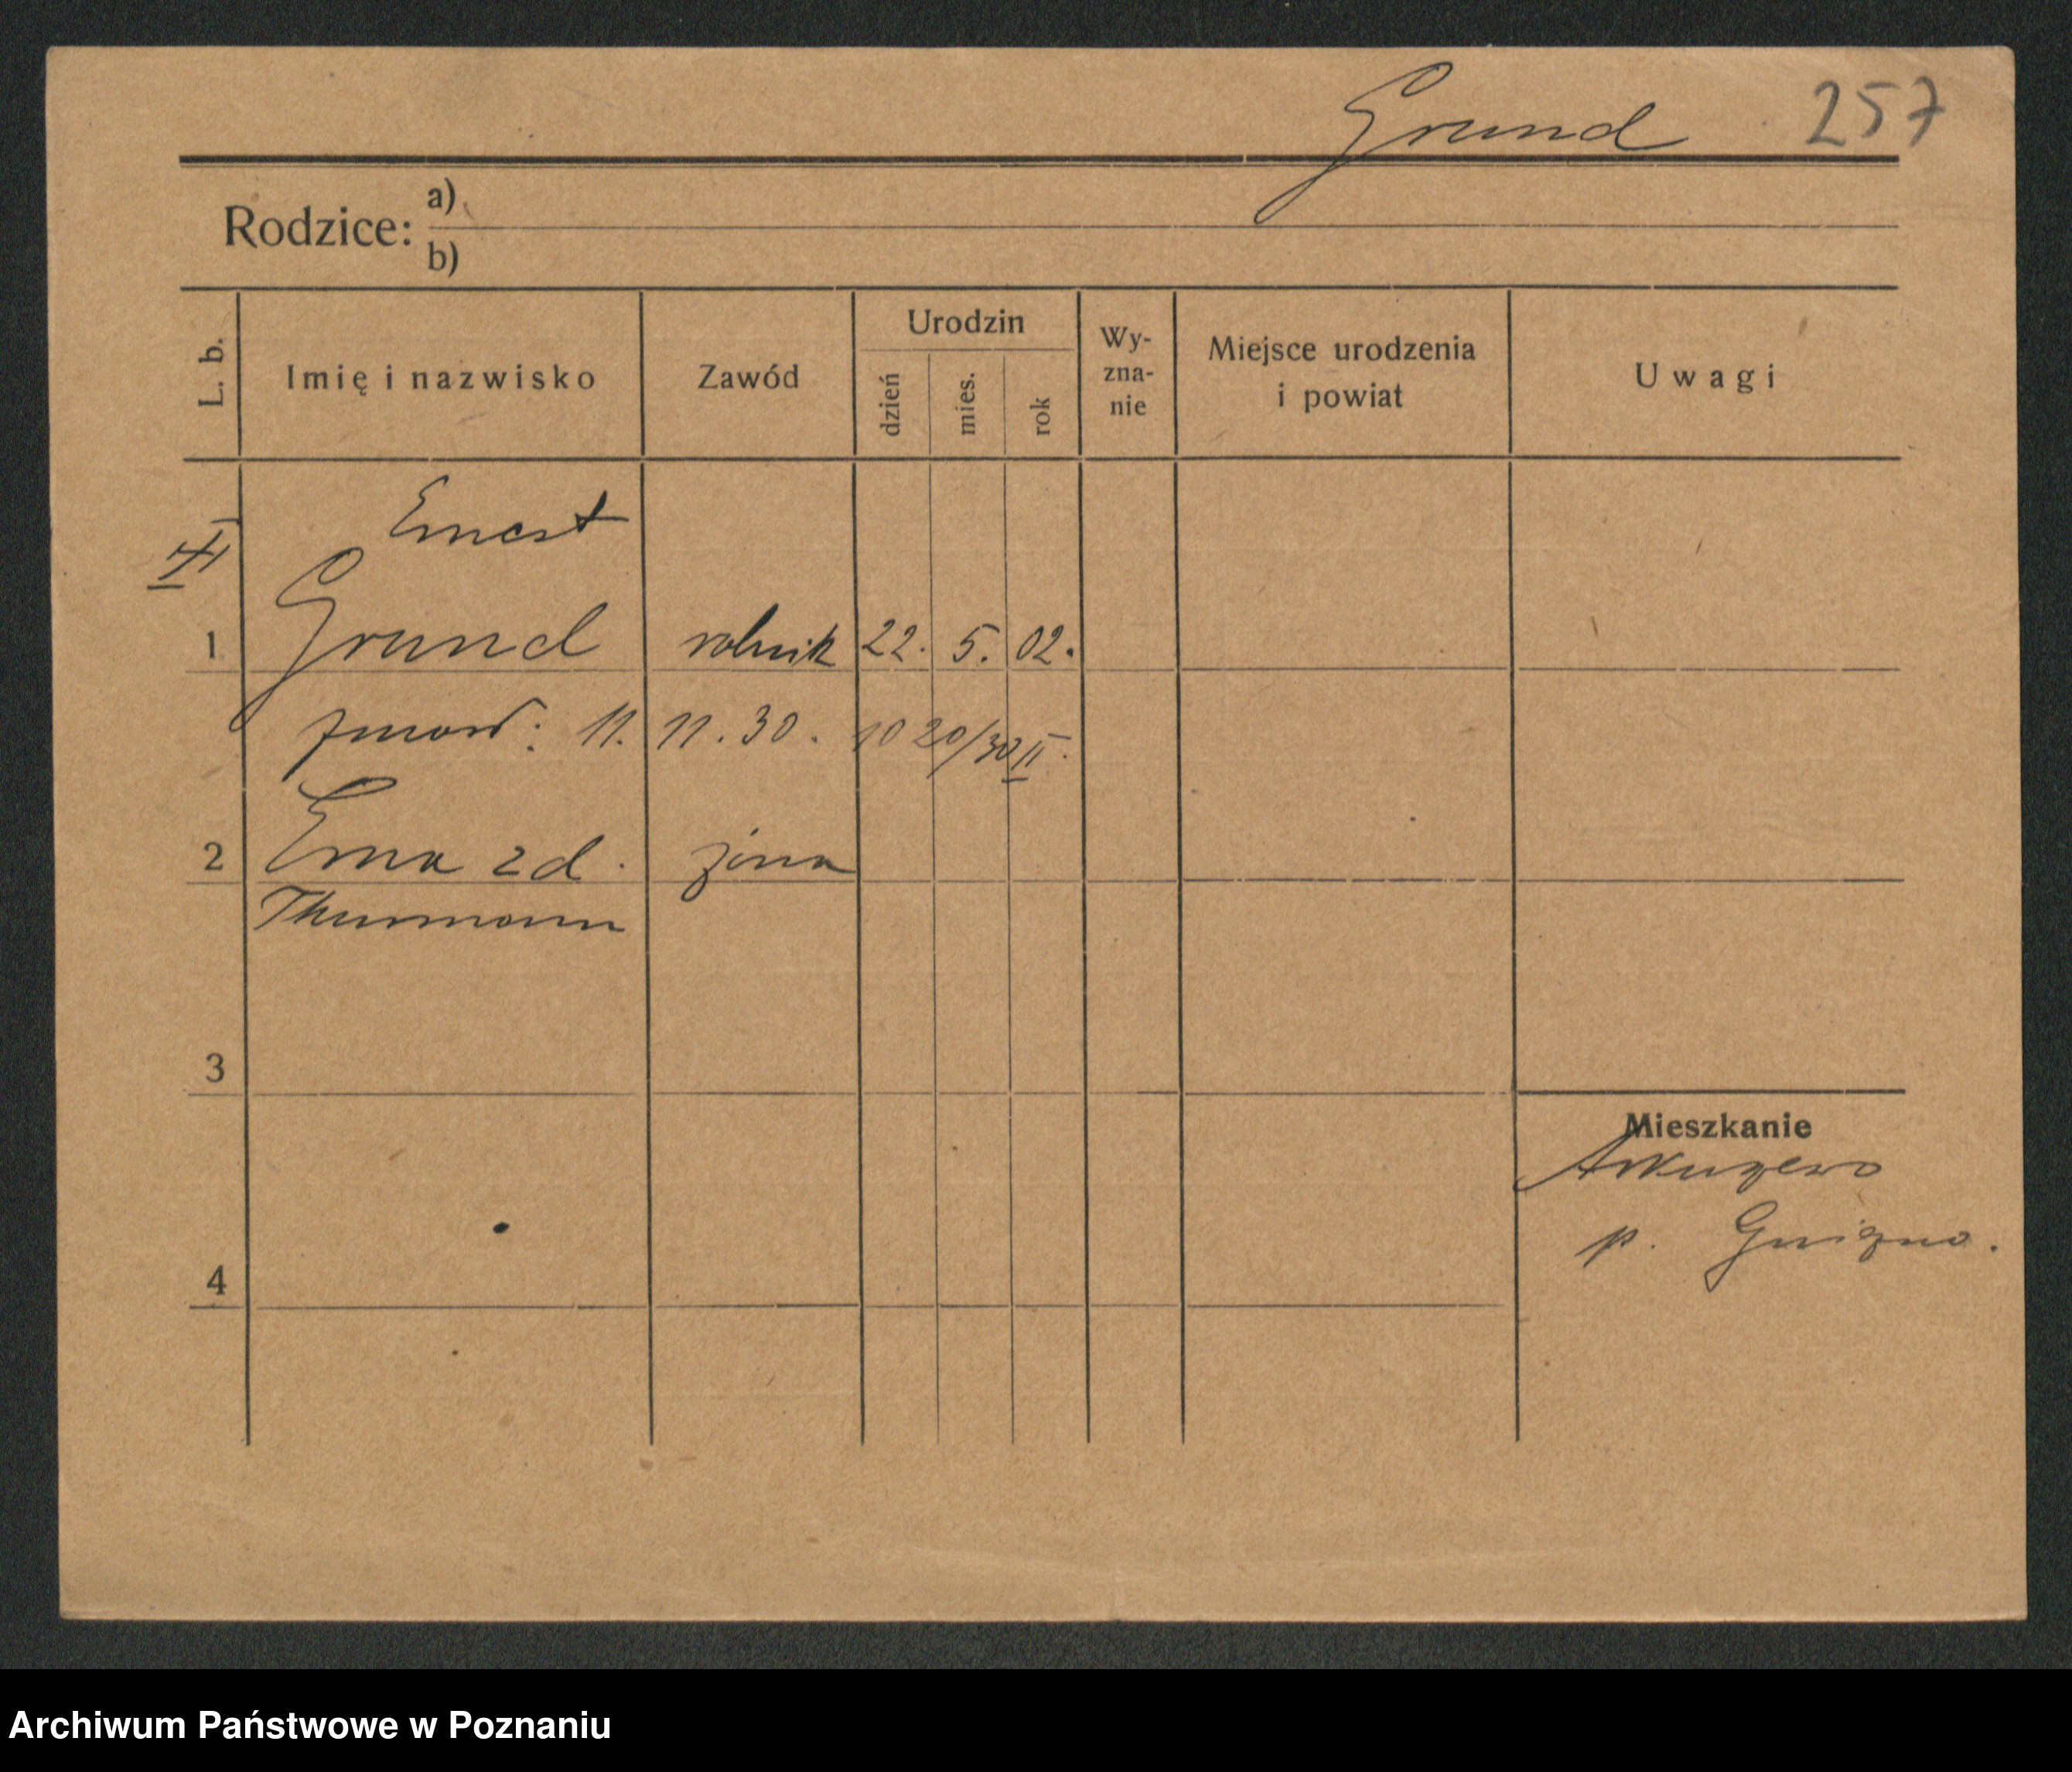 Grund 257
Rodzice: a)
b)
L. b.
Imię i nazwisko
Zawód
Urodzin
dzień mies. rok
Wy-
zna-
nie
Miejsce urodzenia
i powiat
Uwagi
Ernest
1 Grund rolnik 22. 5. 02.
11. 11. 30. 1020/30 II.
2 Erna zd. żona
Thurmann
3
Mieszkanie
p. Gniezno.
4
Archiwum Państwowe w Poznaniu